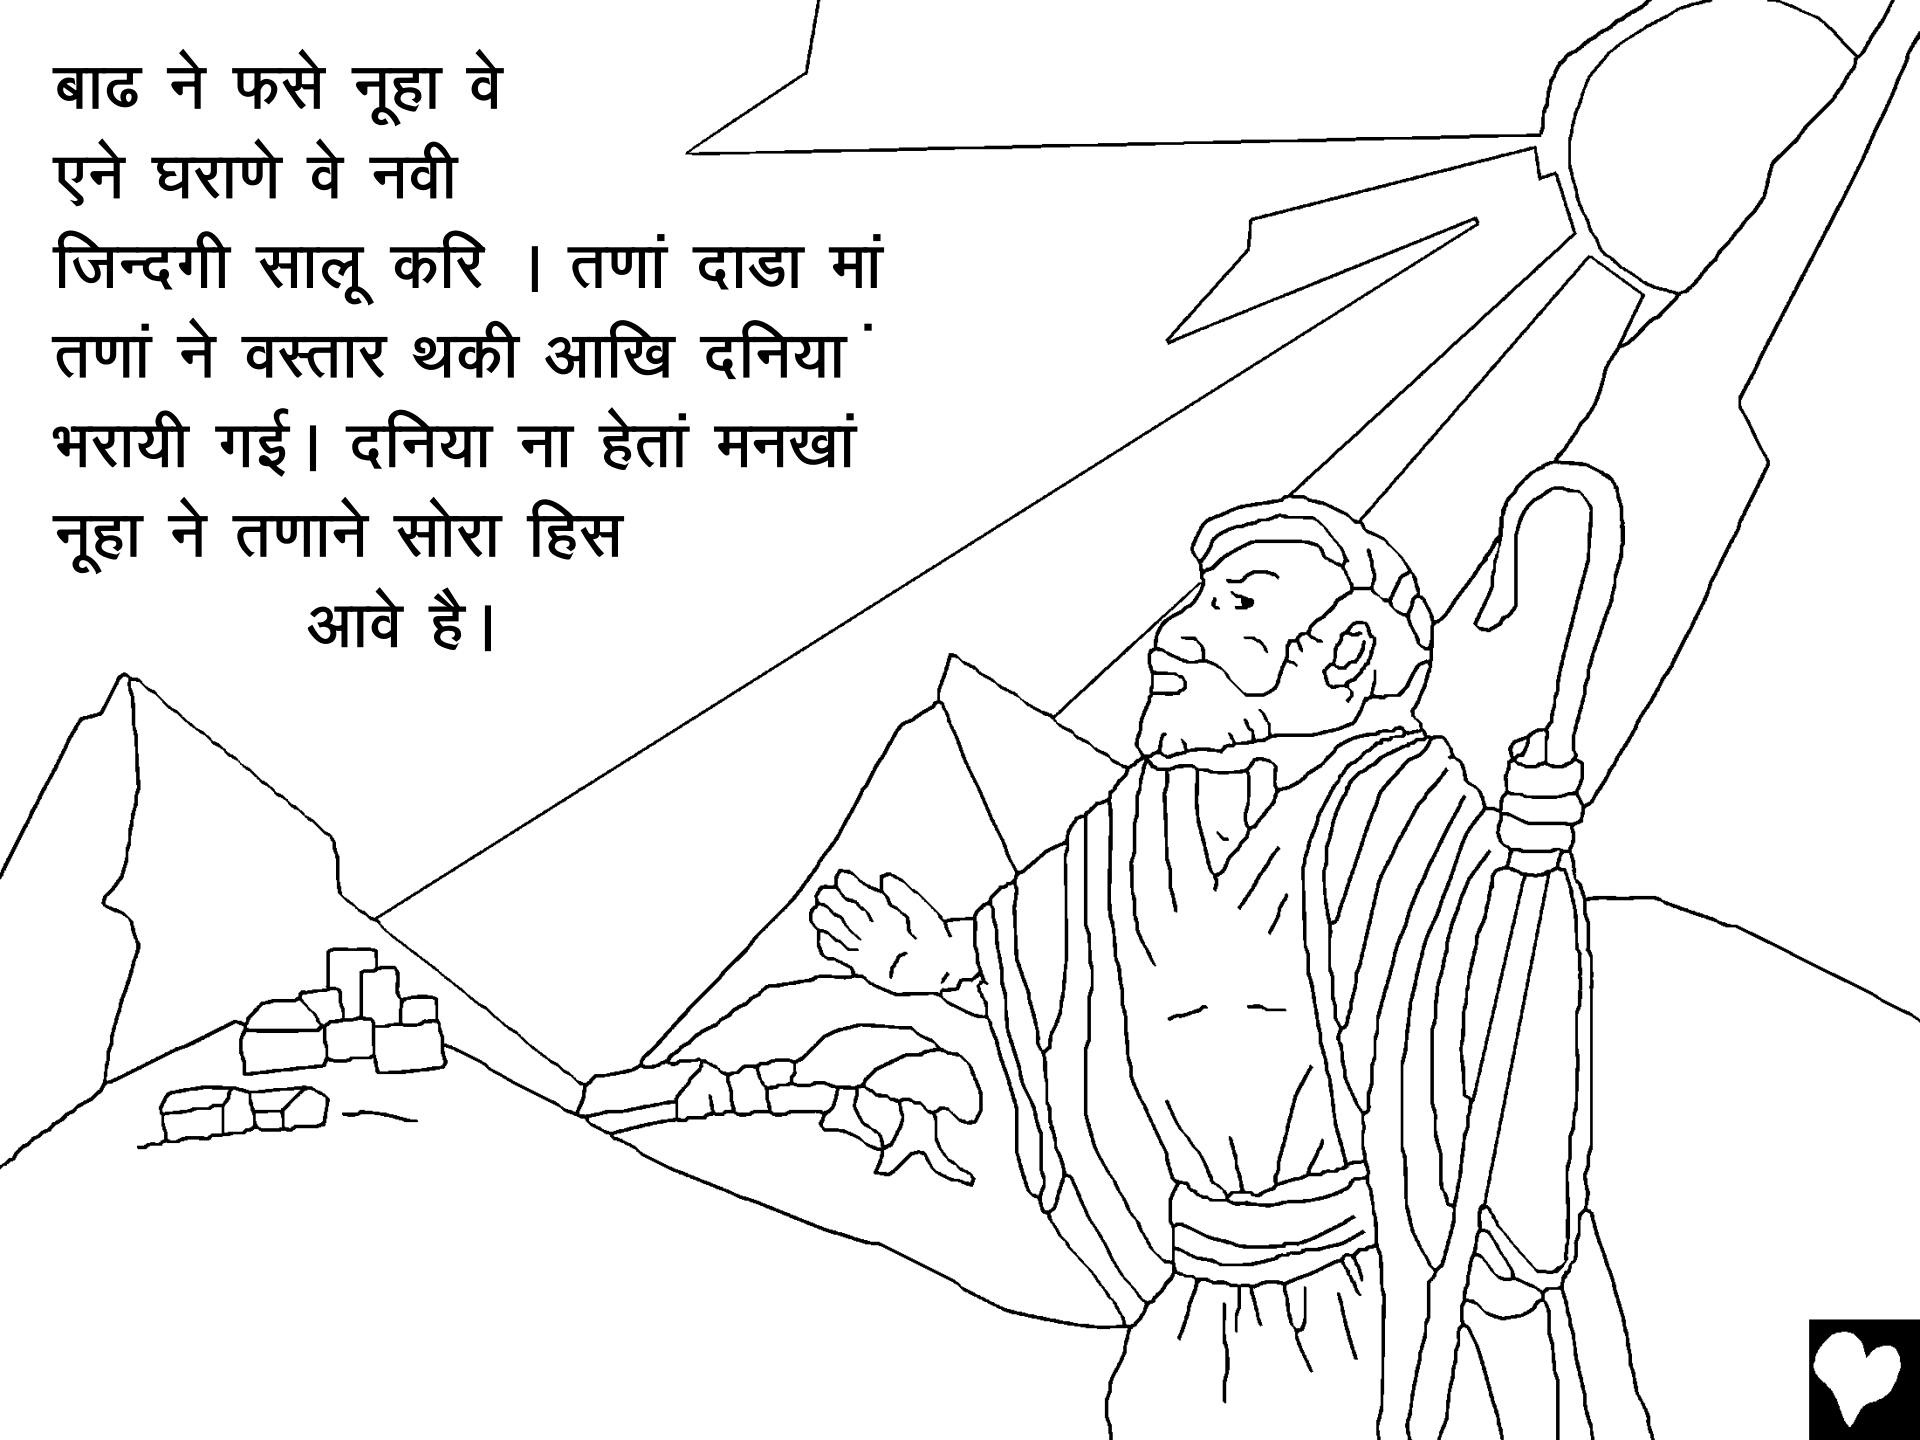 बाढ ने फसे नूहा वे
एने घराणे वे नवी
जिन्दगी सालू करि । तणां दाडा मां
तणां ने वस्तार थकी आखि दनियां
भरायी गई। दनिया ना हेतां मनखां
नूहा ने तणाने सोरा हिस
आवे है।